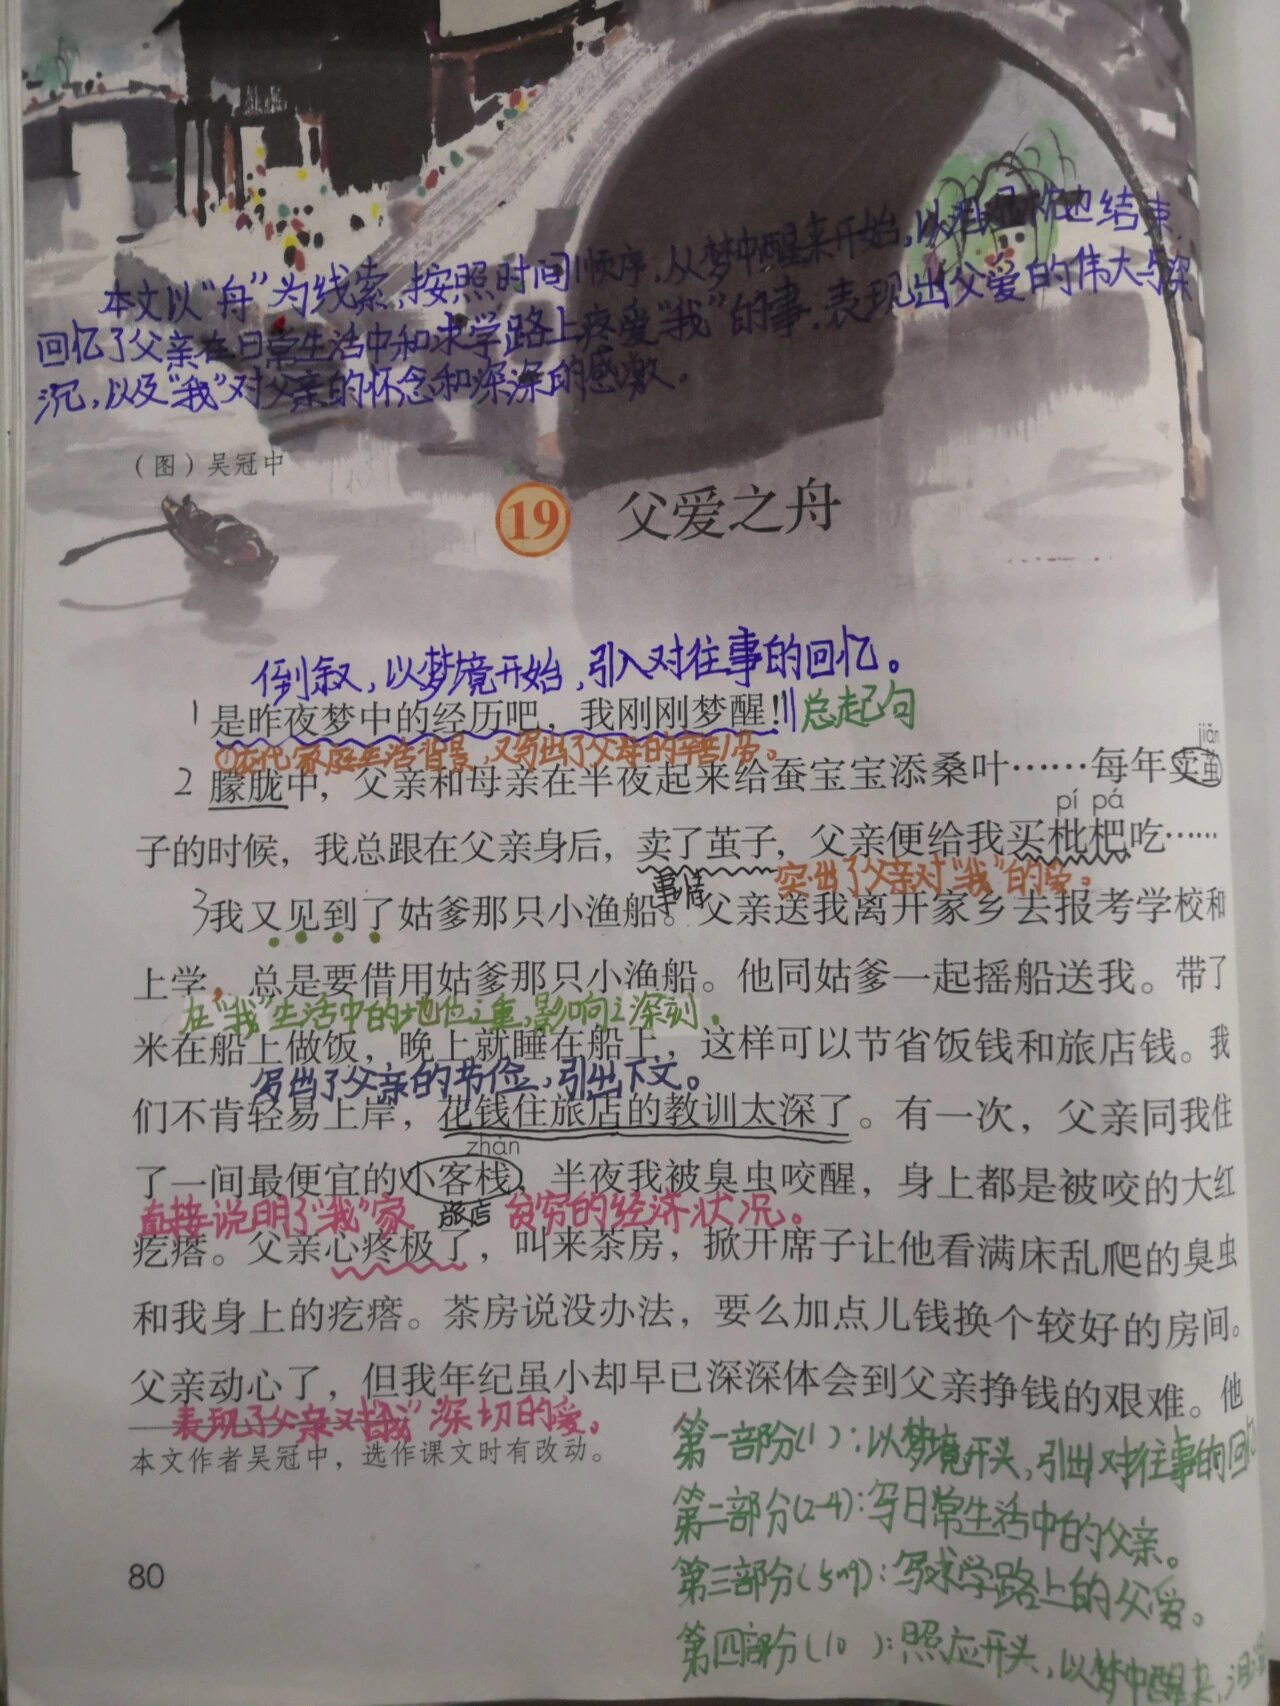 本文以“舟”为线索,按照时间顺序,从梦中醒来开始,以 结束,
回忆了父亲在日常生活中和求学路上疼爱“我”的事,表现出父爱的伟大与深
沉,以及“我”对父亲的怀念和深深的感激。
(图)吴冠中
19 父爱之舟
倒叙,以梦境开始,引入对往事的回忆。
1 是昨夜梦中的经历吧,我刚刚梦醒!|| 总起句
①交代家庭生活背景,又写出了父母的辛勤劳。
jiǎn
2 朦胧中,父亲和母亲在半夜起来给蚕宝宝添桑叶……每年卖茧
pí pá
子的时候,我总跟在父亲身后,卖了茧子,父亲便给我买枇杷吃……
事情 突出了父亲对“我”的爱。
3 我又见到了姑爹那只小渔船。父亲送我离开家乡去报考学校和
上学,总是要借用姑爹那只小渔船。他同姑爹一起摇船送我。带了
在“我”生活中的地位之重,影响之深刻。
米在船上做饭,晚上就睡在船上,这样可以节省饭钱和旅店钱。我
写出了父亲的节俭,引出下文。
们不肯轻易上岸,花钱住旅店的教训太深了。有一次,父亲同我住
zhàn
了一间最便宜的小客栈,半夜我被臭虫咬醒,身上都是被咬的大红
直接说明了“我”家 旅店 贫穷的经济状况。
疙瘩。父亲心疼极了,叫来茶房,掀开席子让他看满床乱爬的臭虫
和我身上的疙瘩。茶房说没办法,要么加点儿钱换个较好的房间。
父亲动心了,但我年纪虽小却早已深深体会到父亲挣钱的艰难。他
表现了父亲对“我”深切的爱。
本文作者吴冠中,选作课文时有改动。
第一部分(1):以梦境开头,引出对往事的回忆
第二部分(2-4):写日常生活中的父亲。
第三部分(5-9):写求学路上的父爱。
第四部分(10):照应开头,以梦中醒来,
80